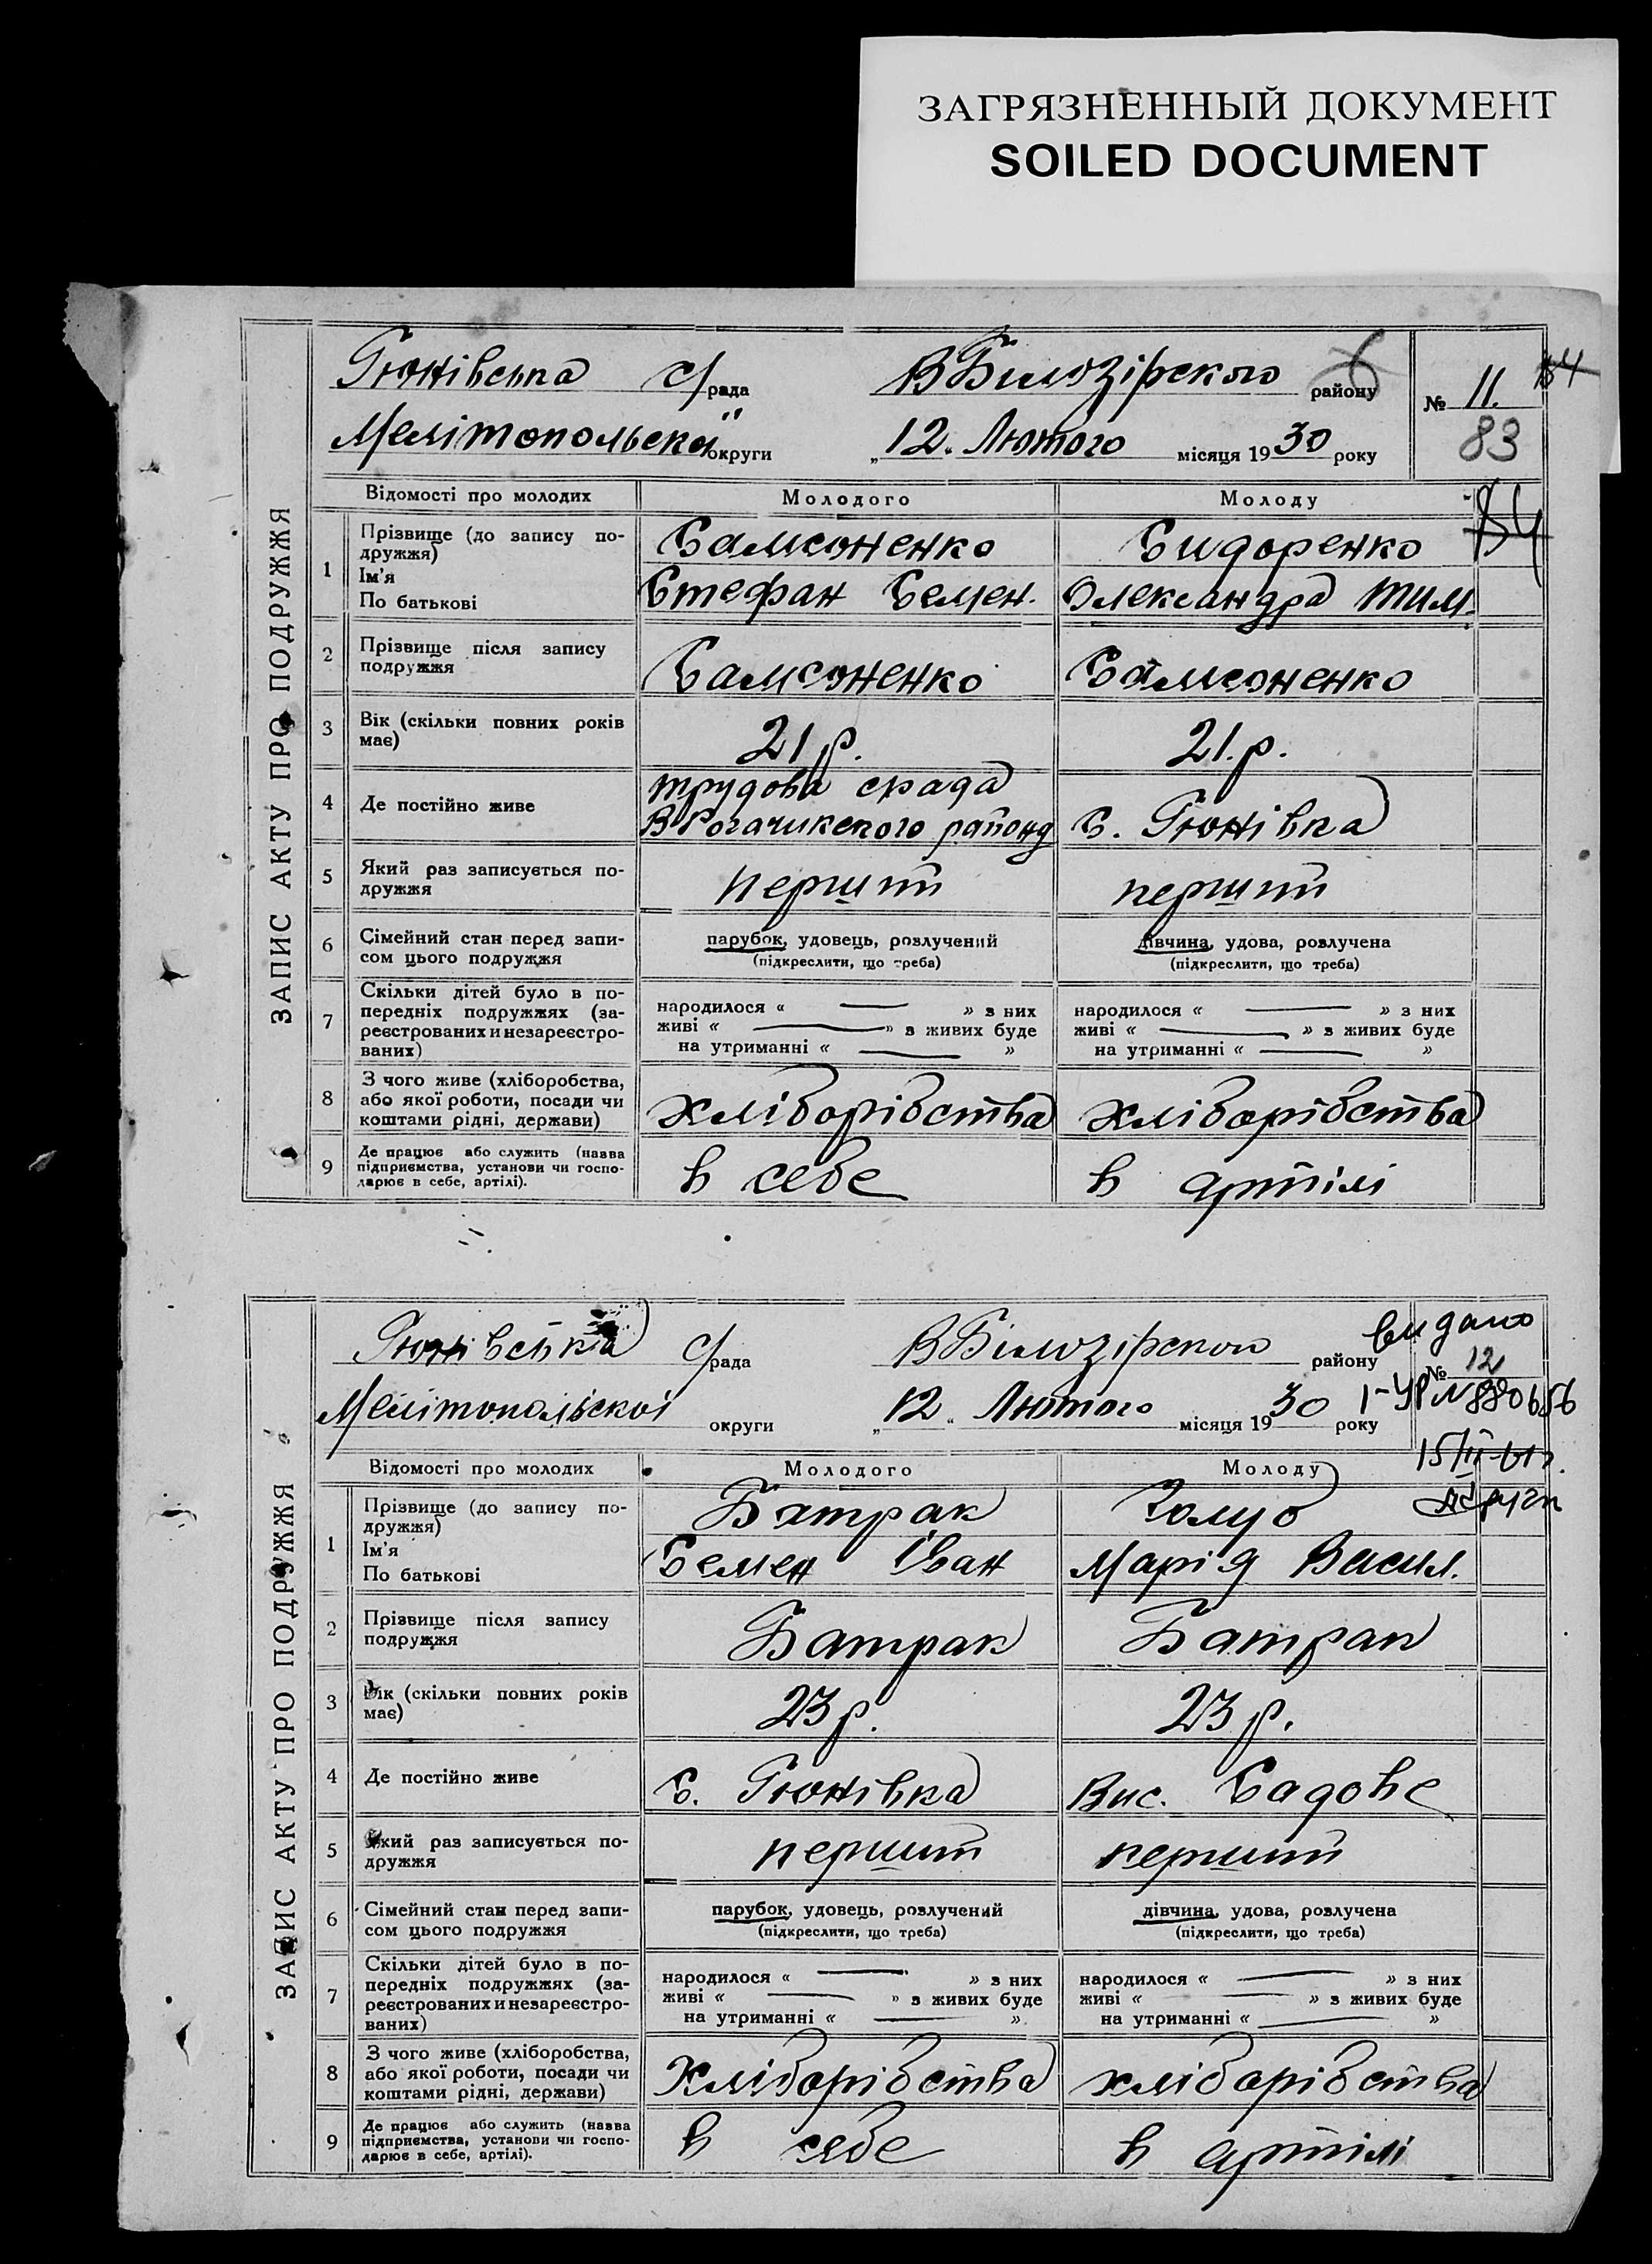 ЗАГРЯЗНЕННЫЙ ДОКУМЕНТ
SOILED DOCUMENT
ЗАПИС АКТУ ПРО ПОДРУЖЖЯ
Гюнівська с/рада ВБілозірского району № 11.
Мелітопольскої округи „12„ Лютого місяця 1930 року 83
84
Відомості про молодих Молодого Молоду
84
1 Прізвище (до запису по-
дружжя) Самсоненко Сидоренко
Ім'я
По батькові Стефан Семен. Олександра Тим.
2 Прізвище після запису
подружжя Самсоненко Самсоненко
3 Вік (скільки повних років
має) 21 р. 21.р.
4 Де постійно живе трудова срада
ВРогачикского району С. Гюнівка
5 Який раз записується по-
дружжя перший перший
6 Сімейний стан перед запи-
сом цього подружжя
парубок, удовець, розлучений
(підкреслити, що треба)
дівчина, удова, розлучена
(підкреслити, що треба)
7 Скільки дітей було в по-
передніх подружжях (за-
реєстрованих и незареєстро-
ваних)
народилося « — » з них
живі « — » з живих буде
на утриманні « — »
народилося « — » з них
живі « — » з живих буде
на утриманні « — »
8 З чого живе (хліборобства,
або якої роботи, посади чи
коштами рідні, держави) хліборібства хліборібства
9 Де працює або служить (назва
підприємства, установи чи госпо-
дарює в себе, артілі). в себе в артілі
ЗАПИС АКТУ ПРО ПОДРУЖЖЯ
видано
Гюнівська с/рада ВБілозірскои району № 12
Мелітопольскої округи „12„ Лютого місяця 1930 року
І-УР N 880656
Відомості про молодих Молодого Молоду
1 Прізвище (до запису по-
дружжя) Батрак Голуб
Ім'я
По батькові Семен Іван Марія Васил.
2 Прізвище після запису
подружжя Батрак Батрак
3 Вік (скільки повних років
має) 23 р. 23 р.
4 Де постійно живе С. Гюнівка Вис. Садове
5 Який раз записується по-
дружжя перший перший
6 Сімейний стан перед запи-
сом цього подружжя
парубок, удовець, розлучений
(підкреслити, що треба)
дівчина, удова, розлучена
(підкреслити, що треба)
7 Скільки дітей було в по-
передніх подружжях (за-
реєстрованих и незареєстро-
ваних)
народилося « — » з них
живі « — » з живих буде
на утриманні « — »
народилося « — » з них
живі « — » з живих буде
на утриманні « — »
8 З чого живе (хліборобства,
або якої роботи, посади чи
коштами рідні, держави) Хліборібства хліборібства
9 Де працює або служить (назва
підприємства, установи чи госпо-
дарює в себе, артілі). в себе в артілі